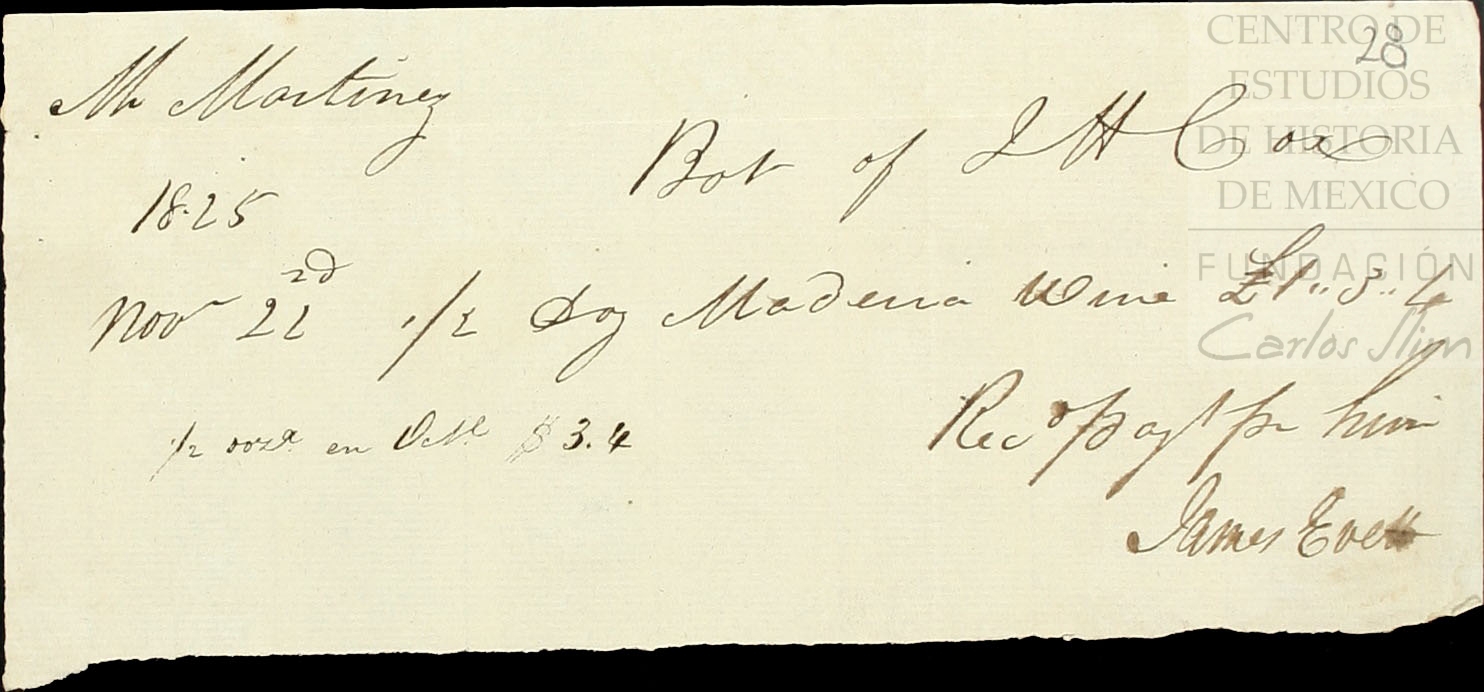 28
Mr Martinez
Bot of J H Cox
1825
Novr 22nd 1/2 Doz Madeira Wine £1..5..4
1/2 onza en $ 3.4
Recd payt pr him
James Evett
CENTRO DE
ESTUDIOS
DE HISTORIA
DE MEXICO
FUNDACIÓN
Carlos Slim